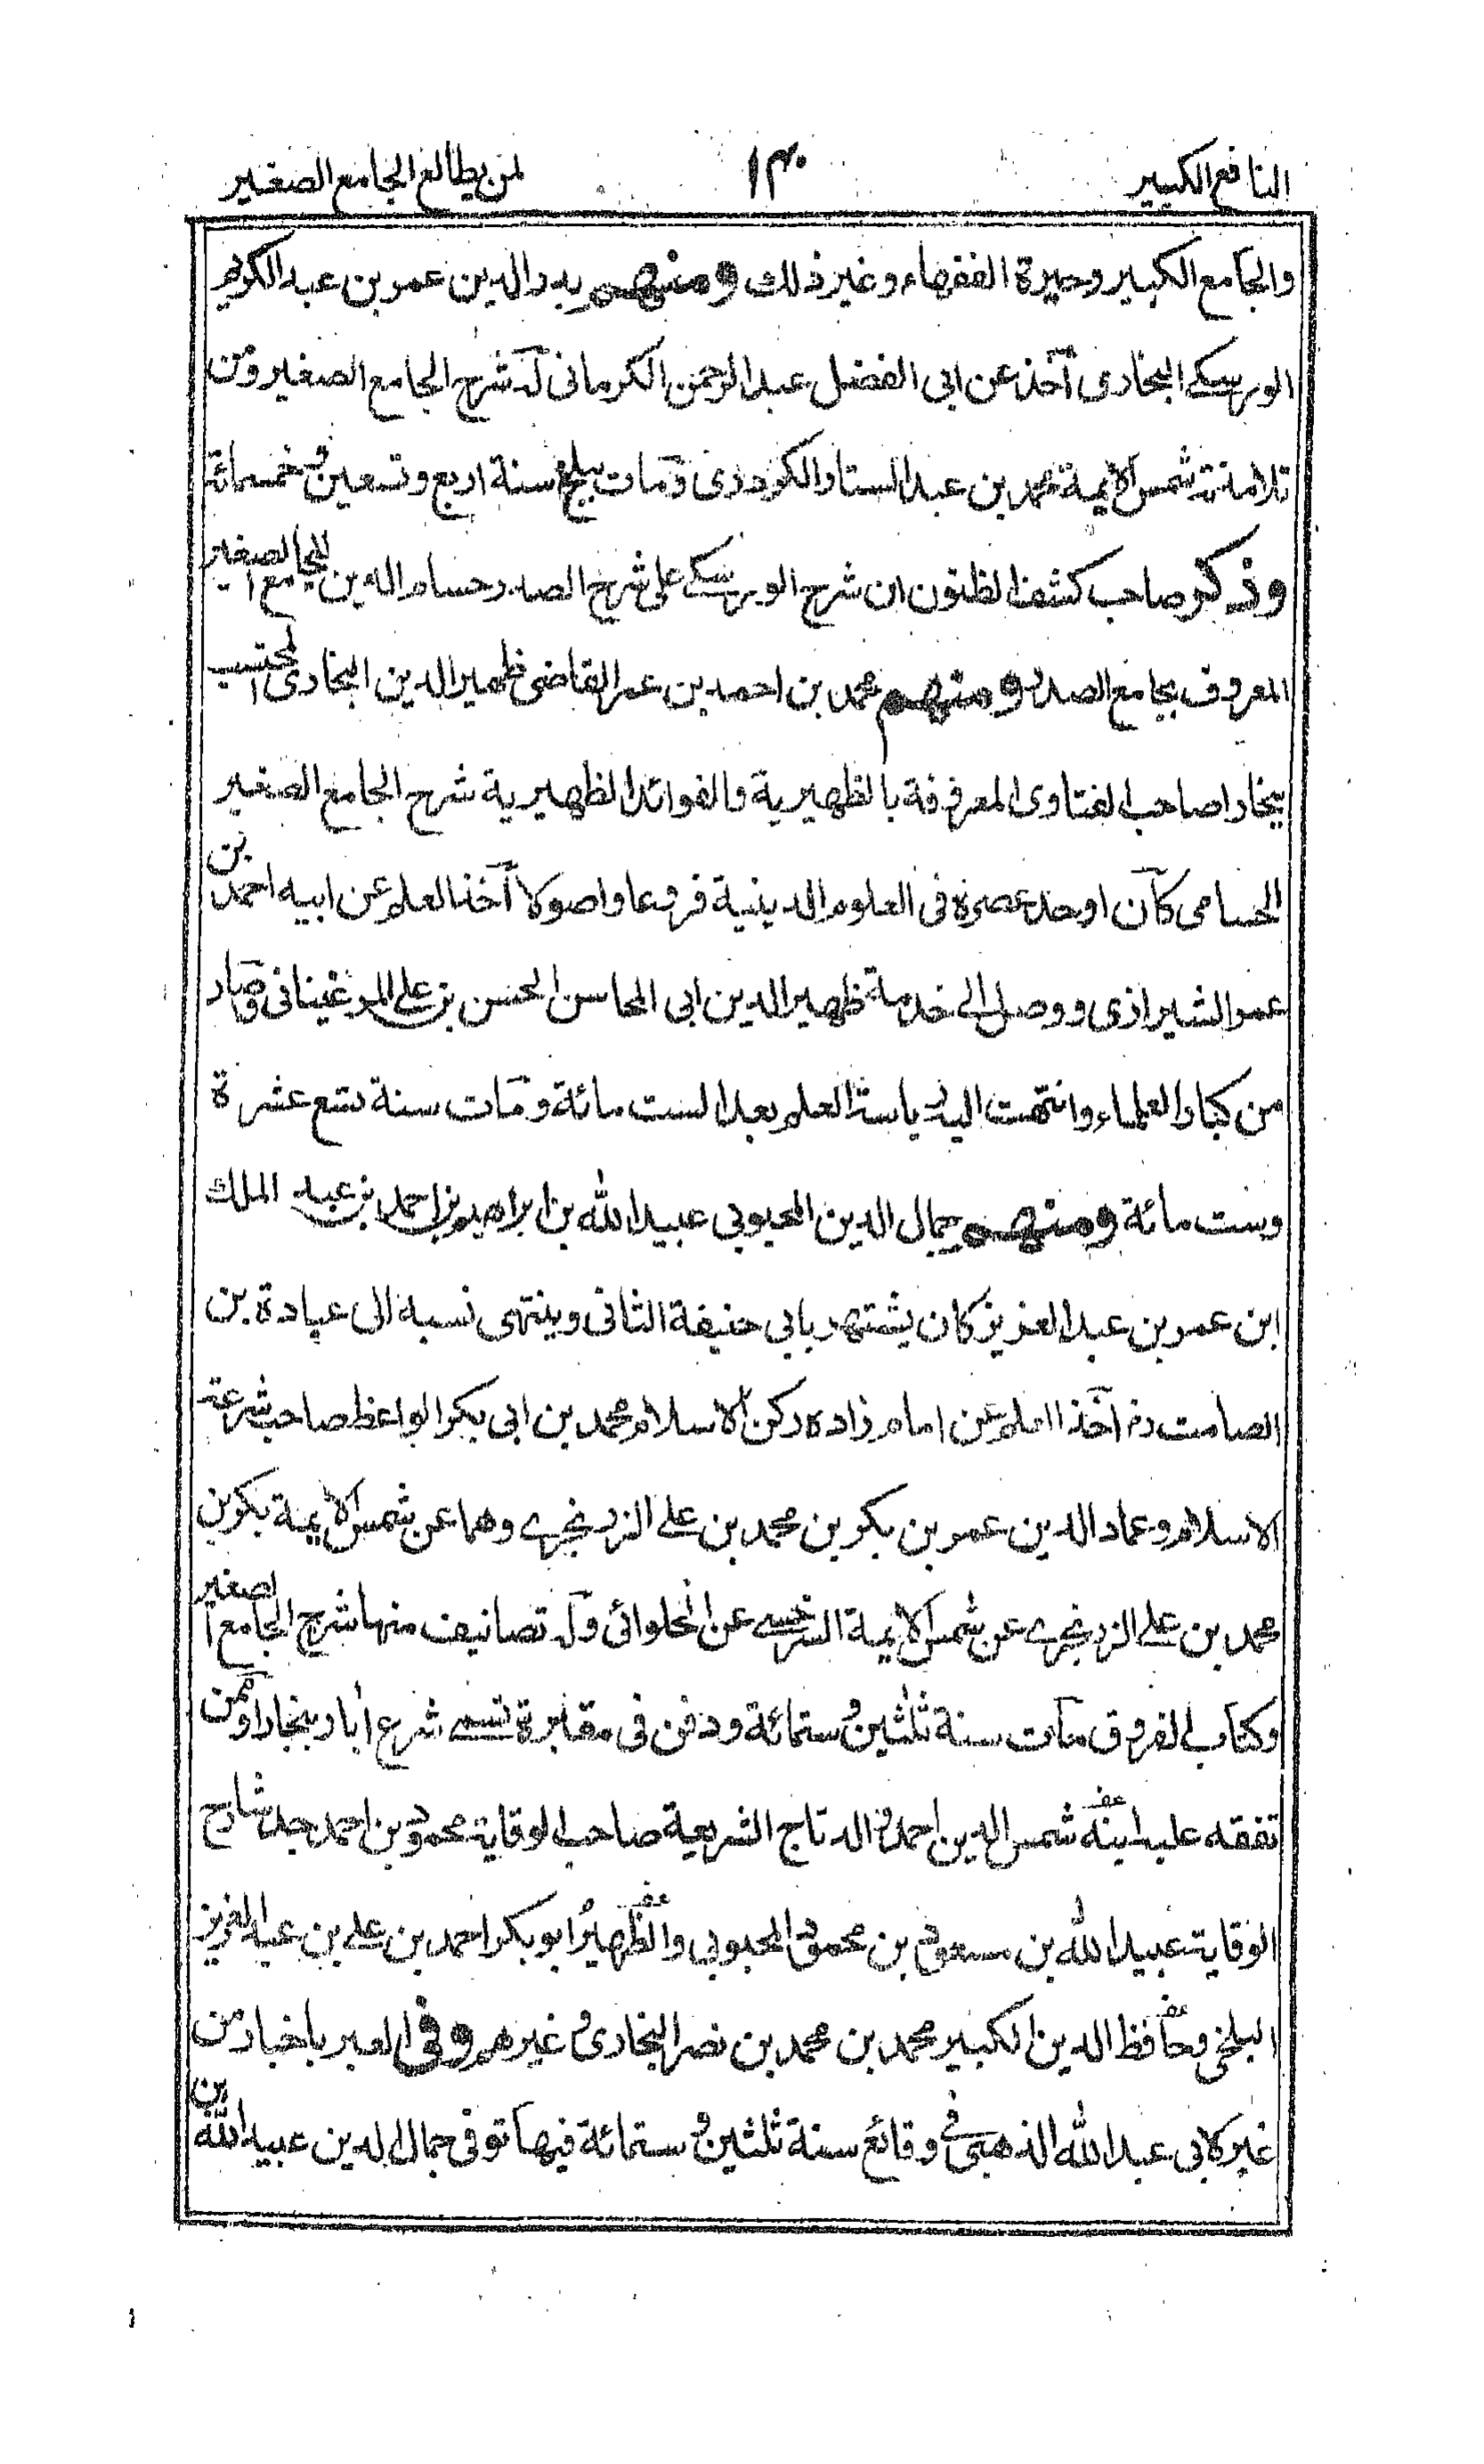 النافع الكبير ١٤٠ لمن يطالع الجامع الصغير
والجامع الكبير وحيرة الفقهاء وغير ذلك ومنهم بدر الدين عمر بن عبد الكريم
الورسكي البخارى أخذ عن ابى الفضل عبد الرحمن الكرمانى له شرح الجامع الصغير ومن
تلامذته شمس الايمة محمد بن عبد الستار الكردرى ومات ببلخ سنة اربع وتسعين وخمسمائة
وذكر صاحب كشف الظنون ان شرح الورسكي على شرح الصدر حسام الدين للجامع الصغير
المعروف بجامع الصدر ومنهم محمد بن احمد بن عمر القاضى ظهير الدين البخارى المحتسب
ببخارا صاحب الفتاوى المعروفة بالظهيرية والفوائد الظهيرية شرح الجامع الصغير
الحسامى كان اوحد عصره فى العلوم الدينية فروعا واصولا أخذ العلم عن ابيه احمد بن
عمر الشيرازى ووصل الى خدمة ظهير الدين ابى المحاسن الحسن بن على المرغينانى وصار
من كبار العلماء وانتهت اليه رياسة العلم بعد الست مائة ومات سنة تسع عشرة
وست مائة ومنهم جمال الدين المحبوبى عبيد الله بن ابراهيم بن احمد بن عبد الملك
ابن عمر بن عبد العزيز كان يشتهر بابي حنيفة الثانى وينتهى نسبه الى عبادة بن
الصامت رض أخذ العلم عن امام زاده ركن الاسلام محمد بن ابى بكر الواعظ صاحب شرعة
الاسلام وعماد الدين عمر بن بكر بن محمد بن على الزرنجرى وهما عن شمس الايمة بكر بن
محمد بن على الزرنجرى عن شمس الايمة السرخسى عن الحلوائى وله تصانيف منها شرح الجامع الصغير
وكتاب الفروق مات سنة ثلثين وستمائة ودفن فى مقبرة تسمى شرع أباد ببخارا وممن
تفقه عليه ابنه شمس الدين احمد والد تاج الشريعة صاحب الوقاية محمود بن احمد جد شارح
الوقاية عبيد الله بن مسعود بن محمود المحبوبى والظهير ابو بكر احمد بن على بن عبد العزيز
البلخى وحافظ الدين الكبير محمد بن محمد بن نصر البخارى وغيرهم وفى العبر باخبار من
غبر لابى عبد الله الذهبى فى وقائع سنة ثلثين وستمائة فيها توفى جمال الدين عبيد الله بن